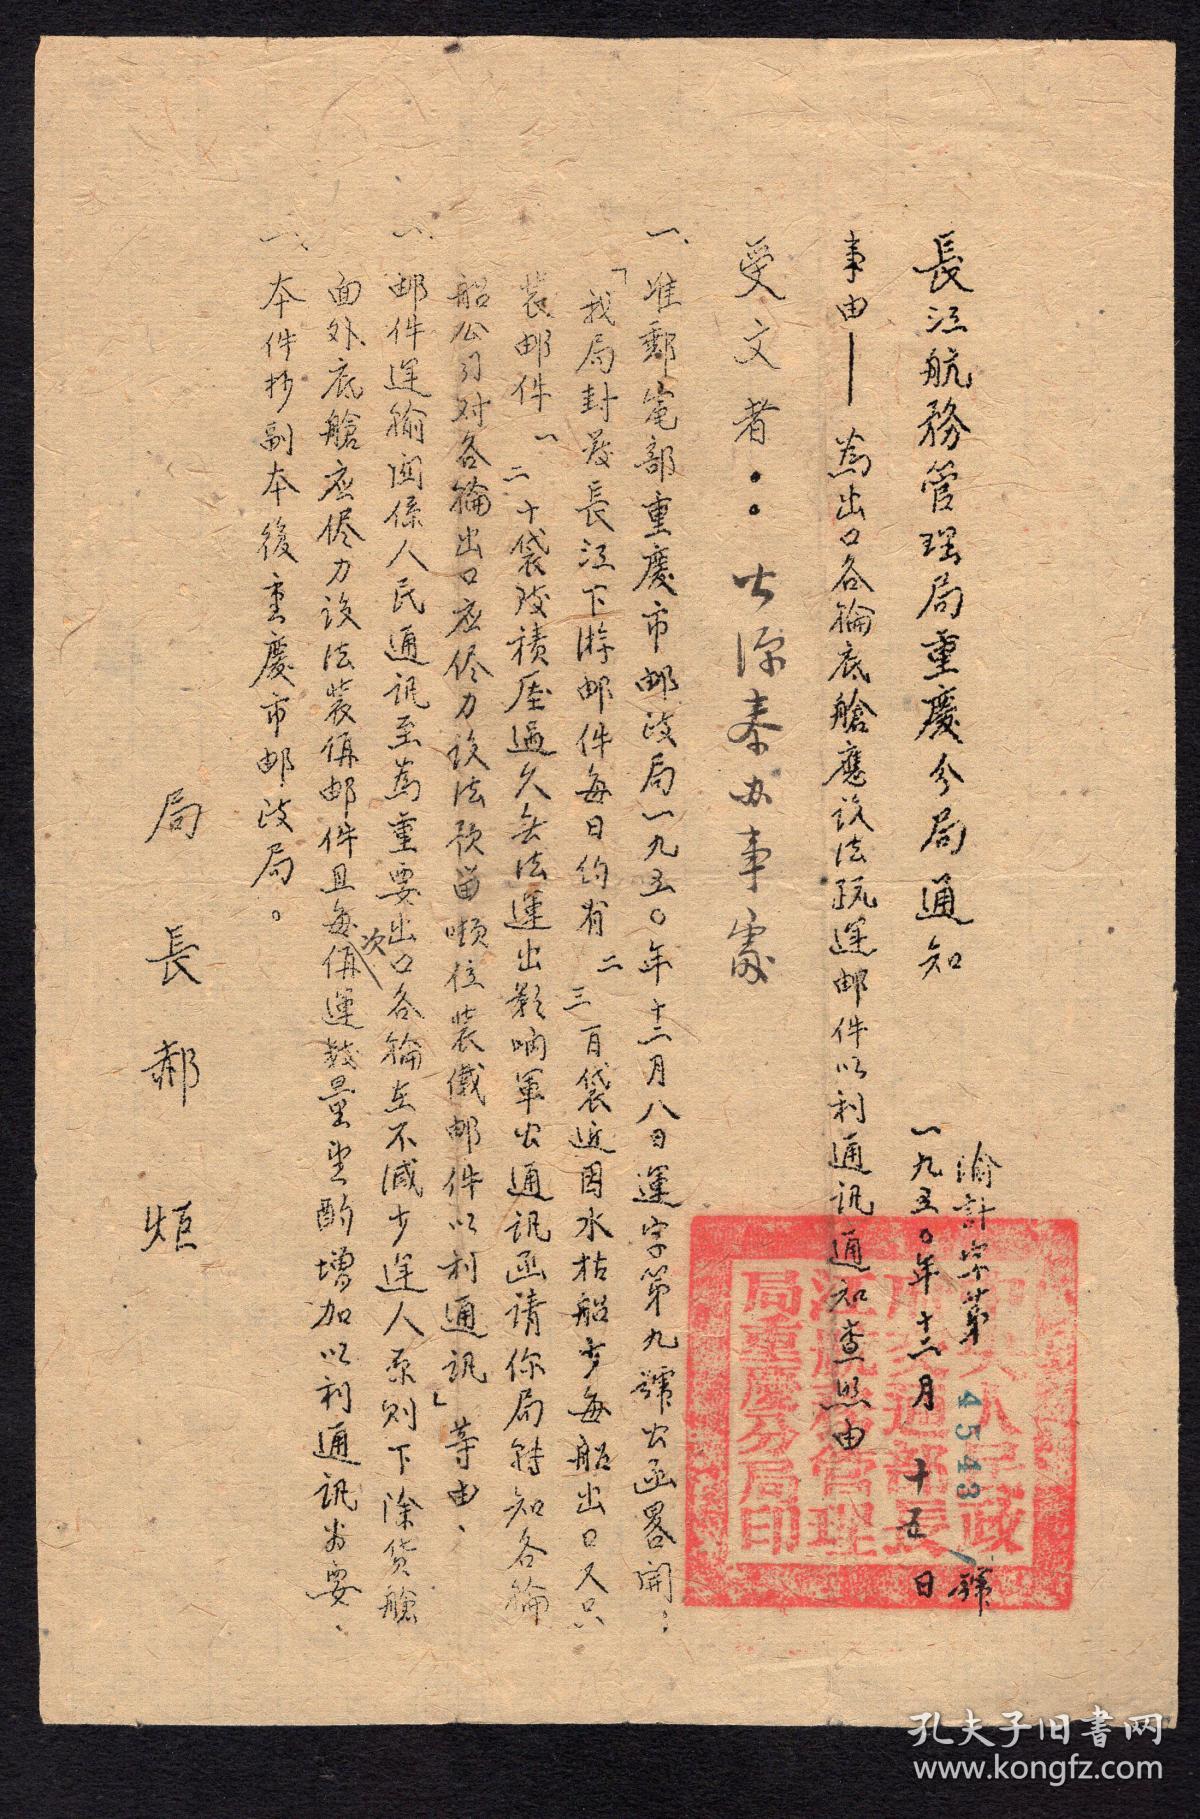 長江航務管理局重慶分局通知
渝計字第4543號
一九五〇年十二月十五日
事由——為出口各輪底艙應設法疏運邮件以利通訊通知查照由
受文者：
一、准郵電部重慶市邮政局一九五〇年十二月八日運字第九號公函畧開：
「我局封發長江下游邮件每日約有二三百袋近因水枯船少每船出口又只
裝邮件一二十袋致積压過久無法運出影响軍公通訊函请你局轉知各輪
船公司对各輪出口应侭力設法預留噸位裝儎邮件以利通訊」等由、
一、邮件運输関係人民通訊至為重要出口各輪在不減少運人原则下除货艙
面外底艙应侭力設法裝俩邮件且每次俩運数量望酌增加以利通訊为要、
一、本件抄副本後重慶市邮政局。
局長郝炬
中央人民政
府交通部長
江航務管理
局重慶分局印
孔夫子旧書网
www.kongfz.com